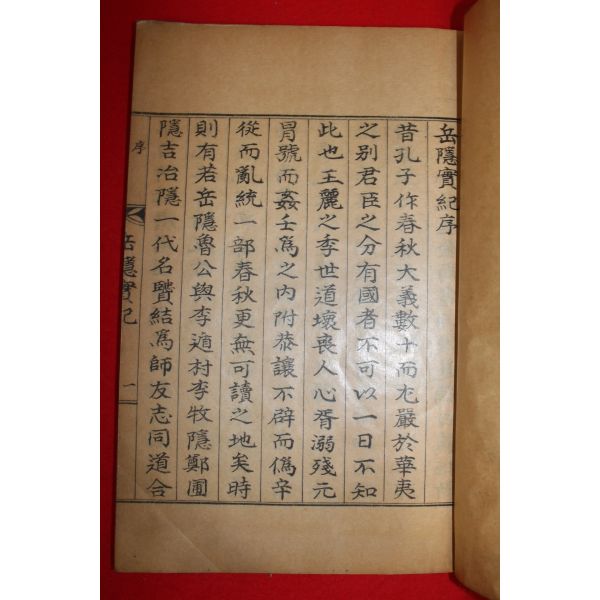 岳隱實紀序
昔孔子作春秋大義數十而尤嚴於華夷
之別君臣之分有國者不可以一日不知
此也王麗之季世道壞喪人心胥溺殘元
冐號而姦壬爲之內附恭讓不辟而僞辛
從而亂統一部春秋更無可讀之地矣時
則有若岳隱魯公與李遁村李牧隱鄭圃
隱吉冶隱一代名賢結爲師友志同道合
序
岳隱實紀
一